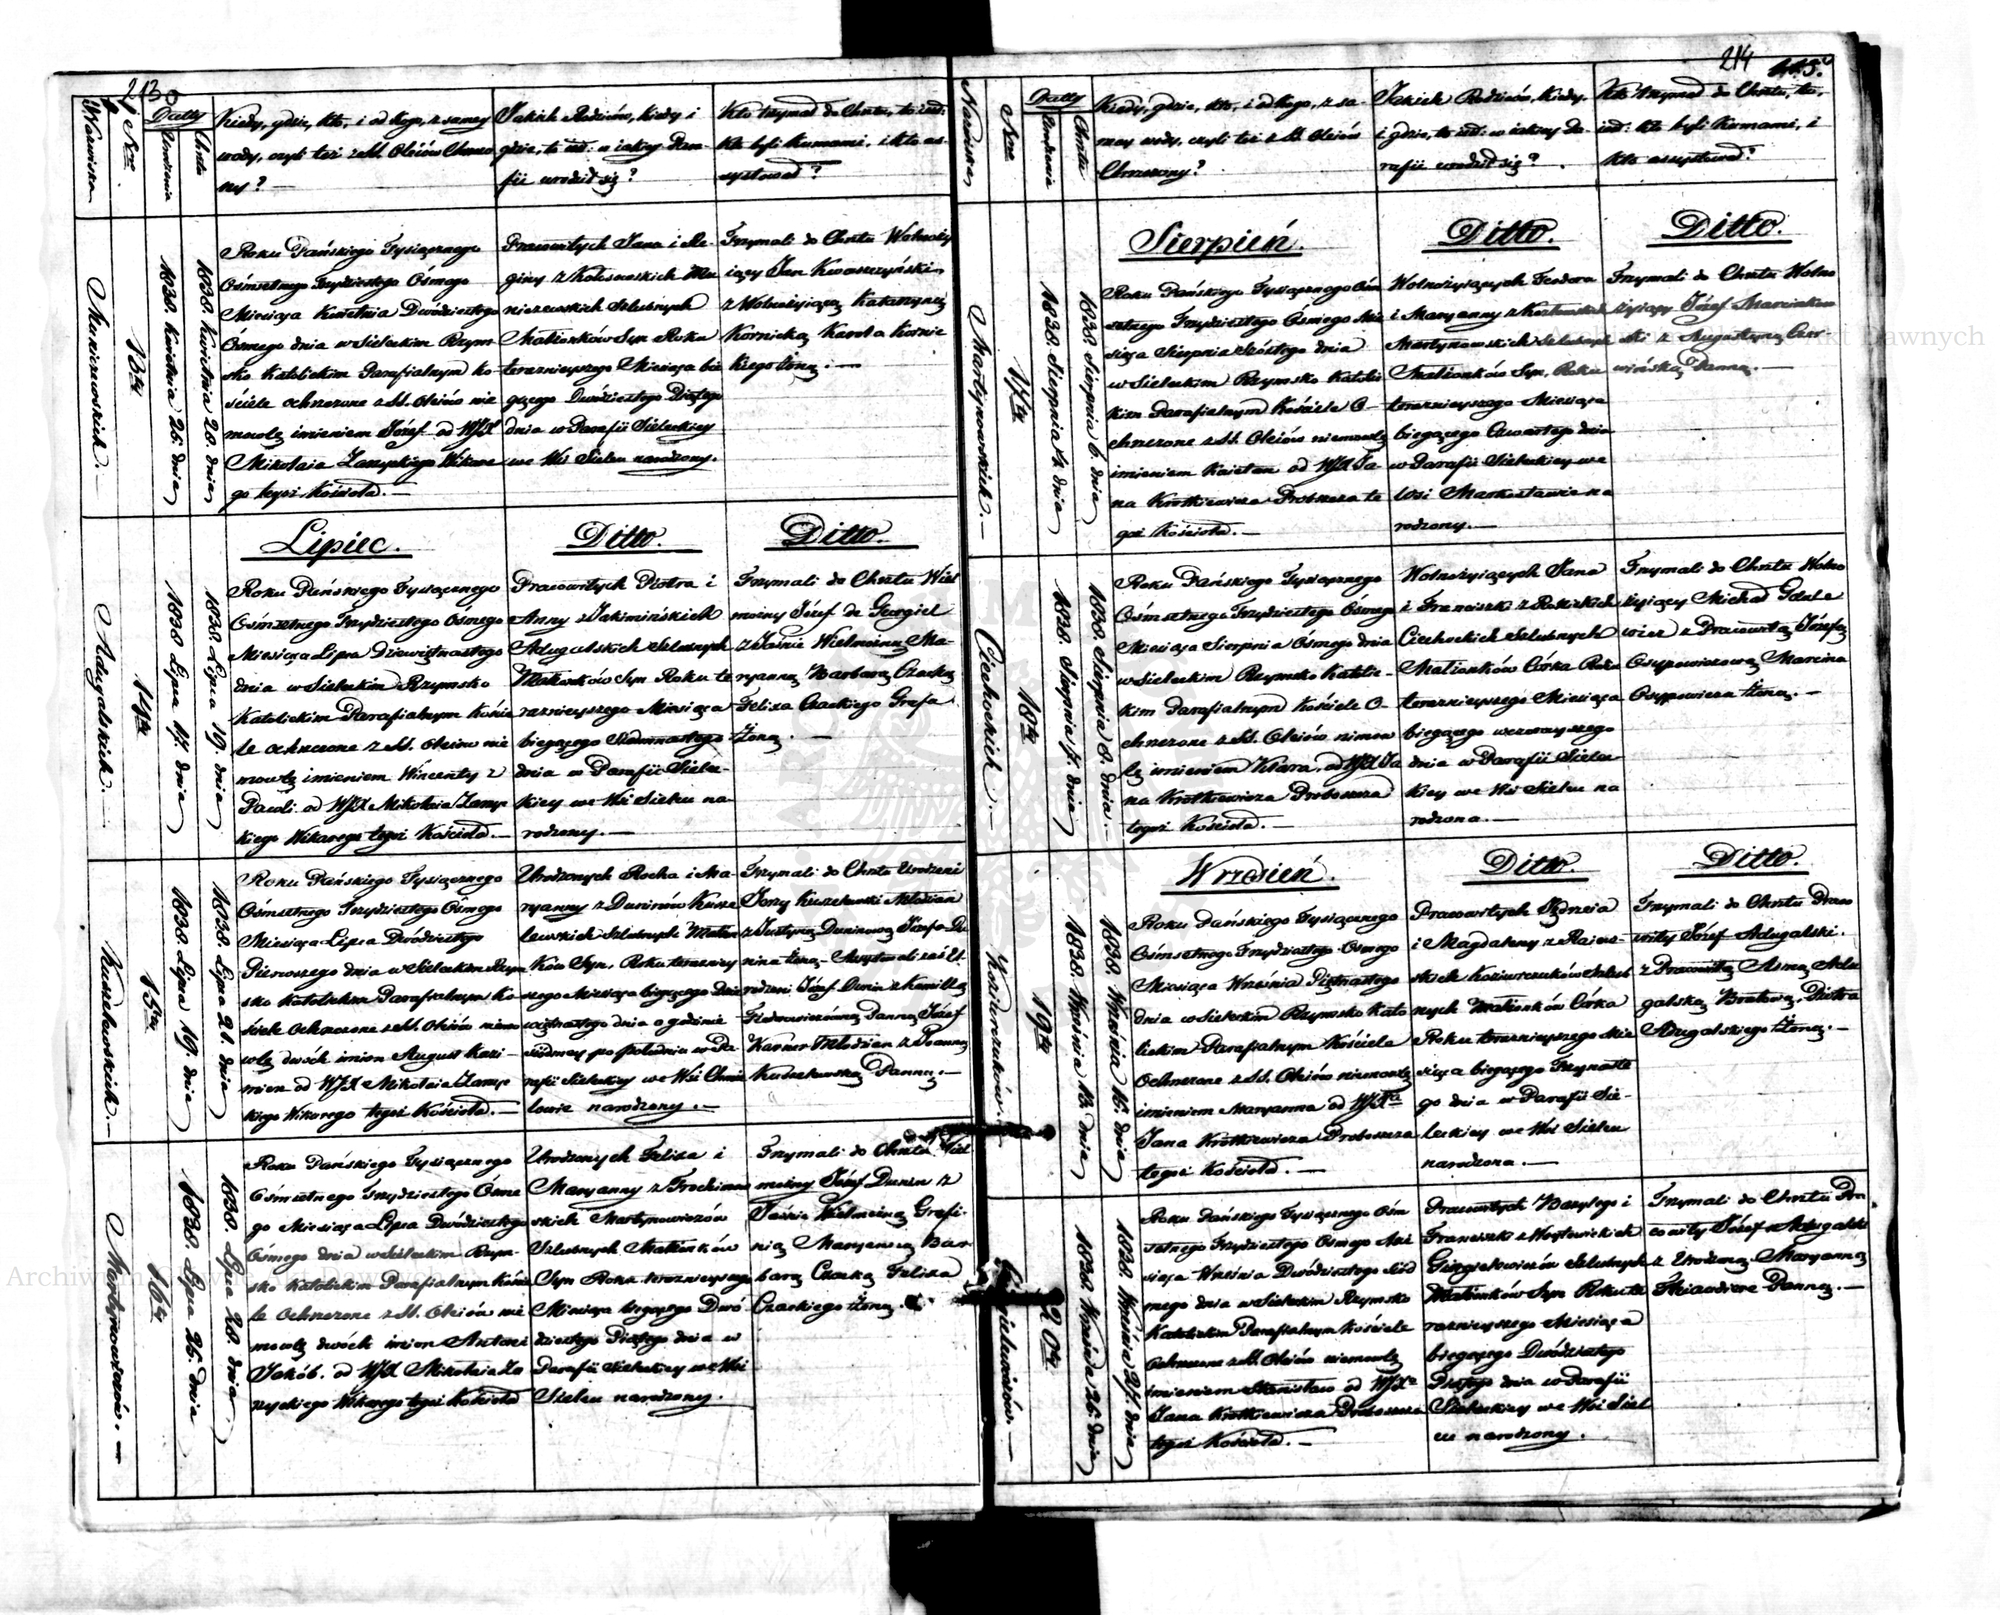 213
Nazwiska
Nro
Datty
Urodzenia
Chrztu
Kiedy, gdzie, kto, i od kogo, z samey
wody, czyli też z SS. Oleiów Chrzco
ny? —
Jakich Rodziców, kiedy i
gdzie, to iest: w iakiey Para-
fii urodził się?
Kto trzymał do Chrztu, to iest:
kto byli Kumami, i kto as-
systował?
13ty
1838. Kwietnia 25. dnia
1838. Kwietnia 28. dnia
Roku Pańskiego Tysiącznego
Ośmsetnego Trzydziestego Ósmego
Miesiąca Kwietnia Dwódziestego
Ósmego dnia w Sieleckim Rzym
sko Katolickim Parafialnym ko
ściele ochrzczone z SS. Oleiów nie
mowlę imieniem Józef od WJX
Mikołaia Zamyckiego Wikare
go tegoż Kościoła. —
Pracowitych Jana i Re-
giny z
Szlubnych
Małżonków Syn Roku
teraznieyszego Miesiąca bie
gącego Dwódziestego Piątego
dnia w Parafii Sieleckiey
we Wsi Sielcu narodzony.
Trzymali do Chrztu Wolnoży
iący Jan Kwaszczyński
z Wolnożyiącą Katarzyną
Kornicką Karola Kornic
kiego żoną. —
Lipiec.
Ditto.
Ditto.
Adugalskich. —
14ty
1838 Lipca 17. dnia
1838 Lipca 19. dnia
Roku Pańskiego Tysiącznego
Ośmsetnego Trzydziestego Ósmego
Miesiąca Lipca Dziewiętnastego
dnia w Sieleckim Rzymsko
Katolickim Parafialnym Koście
le ochrzczone z SS. Oleiów nie
mowlę imieniem Wincenty z
Pauli od WJX Mikołaia Zamyc
kiego Wikarego tegoż Kościoła. —
Pracowitych Piotra i
Anny z Jakimińskich
Adugalskich Szlubnych
Małżonków Syn Roku te
raznieyszego Miesiąca
biegącego Siedmnastego
dnia w Parafii Sielec-
kiey we Wsi Sielcu na-
rodzony. —
Trzymali do Chrztu Wiel
możny Józef de Georgiel
z Jaśnie Wielmożną Ma-
ryanną Barbarą Czacką
Felixa Czackiego Grafa
Żoną. —
Kuszelewskich. —
15ty
1838. Lipca 19. dnia
1838. Lipca 21. dnia
Roku Pańskiego Tysiącznego
Ośmsetnego Trzydziestego Ósmego
Miesiąca Lipca Dwódziestego
Pierwszego dnia w Sieleckim Rzym
sko Katolickim Parafialnym Ko
ściele Ochrzczone z SS. Oleiów niemo
wlę dwóch imion August Kazi-
mierz od WJX Mikołaia Zamyc
kiego Wikarego tegoż Kościoła. —
Urodzonych Rocha i Ma-
ryanny z Duninów Kusze
lewskich Szlubnych Małżon
ków Syn, Roku terazniey
szego Miesiąca biegącego Dzie
więtnastego dnia o godzinie
siódmey po południu w Pa
rafii Sieleckiey we Wsi
narodzony. —
Trzymali do Chrztu Urodzeni
Jerzy Kuszelewski Młodzian
z Justyną Duninową Józefa Du
nina żoną
rodzeni Józef Dunin z Kamillą
Panną Józef
Karner Młodzian z Joanną
Kuszelewską Panną. —
Martynowiczów. —
16ty
1838. Lipca 25. dnia
1838. Lipca 28. dnia
Roku Pańskiego Tysiącznego
Ośmsetnego Trzydziestego Ósme
go Miesiąca Lipca Dwódziestego
Ósmego dnia w Sieleckim Rzym-
sko Katolickim Parafialnym Koście
le Ochrzczone z SS. Oleiów nie
mowlę dwóch imion Antoni
Jakób. od WJX Mikołaia Za
myckiego Wikarego tegoż Kościoła
Urodzonych Felixa i
Maryanny z
Martynowiczów
Szlubnych Małżonków
Syn Roku teraznieyszego
Miesiąca biegącego Dwó
dziestego Piątego dnia w
Parafii Sieleckiey we Wsi
Sielcu narodzony.
Trzymali do Chrztu Wiel
możny Józef Dunin z
Jaśnie Wielmożną Grafi-
nią Maryanną Bar
barą Czacką Felixa
Czackiego Żoną.
214
Nazwiska
Nro
Datty
Urodzenia
Chrztu
Kiedy, gdzie, kto, i od kogo, z sa-
mey wody, czyli też z SS. Oleiów
Chrzczony?
Jakich Rodziców, kiedy,
i gdzie, to iest: w iakiey Pa-
rafii urodził się?
Kto trzymał do Chrztu, to,
iest: kto byli Kumami, i
kto assystował?
Sierpień.
Ditto.
Ditto.
Martynowskich. —
17ty
1838. Sierpnia 4 dnia
1838. Sierpnia 6. dnia
Roku Pańskiego Tysiącznego Ośm
setnego Trzydziestego Ósmego Mie
siąca Sierpnia Szóstego dnia
w Sieleckim Rzymsko Katolic
kim Parafialnym Kościele O-
chrzczone z SS. Oleiów niemowlę
imieniem Kaietan od WJX Ja
na Krotkiewicza Proboszcza te
goż Kościoła. —
Wolnożyiących Teodora
i Maryanny z Kozłowskich
Martynowskich Szlubnych
Małżonków Syn, Roku
teraznieyszego Miesiąca
biegącego Czwartego dnia
w Parafii Sieleckiey we
Wsi na
rodzony. —
Trzymali do Chrztu Wolno
żyiący Józef Marciakow
ski z Augustyną Czer-
wińską Panną. —
Ciechockich. —
18ty
1838. Sierpnia 7. dnia
1838. Sierpnia 8. dnia
Roku Pańskiego Tysiącznego
Ośmsetnego Trzydziestego Ósmego
Miesiąca Sierpnia Ósmego dnia
w Sieleckim Rzymsko Katolic-
kim Parafialnym Kościele O-
chrzczone z SS. Oleiów niemow
lę imieniem Klara, od WJX Ja
na Krotkiewicza Proboszcza
tegoż Kościoła. —
Wolnożyiących Jana
i Franciszki z
Ciechockich Szlubnych
Małżonków Córka Roku
teraznieyszego Miesiąca
biegącego wczorayszego
dnia w Parafii Sielec
kiey we Wsi Sielcu na
rodzona. —
Trzymali do Chrztu Wolno
żyiący Michał
wicz z Pracowitą Józefą
Osypowiczową Marcina
Osypowicza Żoną. —
Wrzesień.
Ditto.
Ditto.
Koziarczuków. —
19ty
1838. Września 13. dnia
1838. Września 15. dnia
Roku Pańskiego Tysiącznego
Ośmsetnego Trzydziestego Ósmego
Miesiąca Września Piętnastego
dnia w Sieleckim Rzymsko Kato
lickim Parafialnym Kościele
Ochrzczone z SS. Oleiów niemowlę
imieniem Maryanna od WJXa
Jana Krotkiewicza Proboszcza
tegoż Kościoła. —
Pracowitych Jędrzeia
i Magdaleny z
skich Koziarczuków Szlub
nych Małżonków Córka
Roku teraznieyszego Mie
siąca biegącego Trzynaste
go dnia w Parafii Sie-
leckiey we Wsi Sielcu
narodzona. —
Trzymali do Chrztu Praco
wity Józef Adugalski.
z Pracowitą Anną Adu
galską Bratową, Piotra
Adugalskiego Żoną. —
Giergielewiczów. —
20ty
1838 Września 25. dnia
1838. Września 27. dnia
Roku Pańskiego Tysiącznego Ośm
setnego Trzydziestego Ósmego Mie
siąca Września Dwódziestego Siód
mego dnia w Sieleckim Rzymsko
Katolickim Parafialnym Kościele
Ochrzczone z SS. Oleiów niemowlę
imieniem Stanisław od WJXa
Jana Krotkiewicza Proboszcza
tegoż Kościoła. —
Pracowitych Bazylego i
Franciszki z Wojtowickich
Giergielewiczów Szlubnych
Małżonków Syn Roku te
raznieyszego Miesiąca
biegącego Dwódziestego
Piątego dnia w Parafii
Sieleckiey we Wsi Siel
cu narodzony.
Trzymali do Chrztu Pra
cowity Józef Adugalski
z Urodzoną Maryanną
Panną. —
Archiwum Główne Akt Dawnych
Archiwum Główne Akt Dawnych